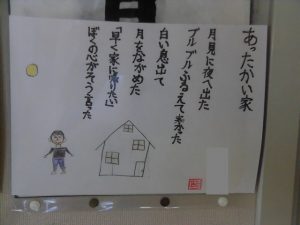 あったかい家
月見に夜へ出た
ブルブルふるえて来た
白い息出て
月をながめた
「早く家に帰りたい」
ぼくの心がそう言った